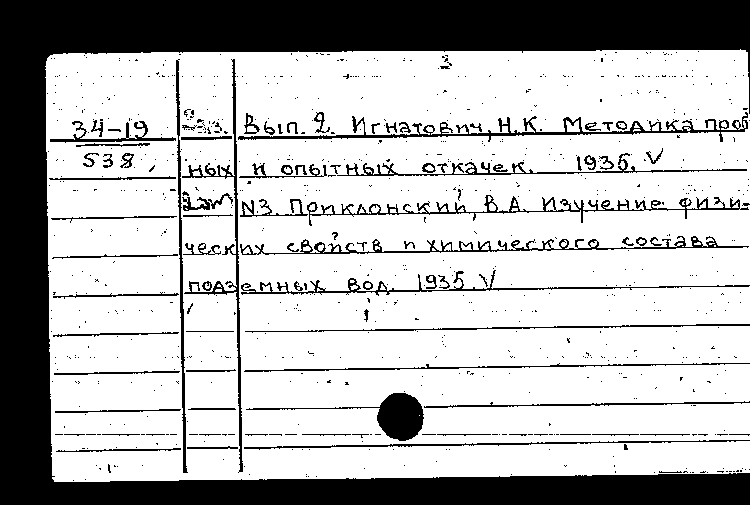 3
34-19 Вып. 2. Игнатович, Н.К. Методика проб
538 ных и опытных откачек. 1935. V
2 эт N3. Приклонский, В.А. Изучение физи-
ческих свойств и химического состава
подземных вод. 1935. V